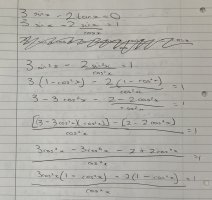 3 sin²x - 2 tan x = 0
3 sin²x - 2 sin²x / cos²x = 1
3 (1 - cos²x) - 2 (1 - cos²x) / cos²x = 1
3 - 3cos²x - 2 - 2cos²x / cos²x = 1
[(3 - 3cos²x)(cos²x)] - [2 - 2cos²x] / cos²x = 1
3cos²x - 3cos⁴x - 2 + 2cos²x / cos²x = 1
3cos²x (1 - cos²x) - 2(1 - cos²x) / cos²x = 1